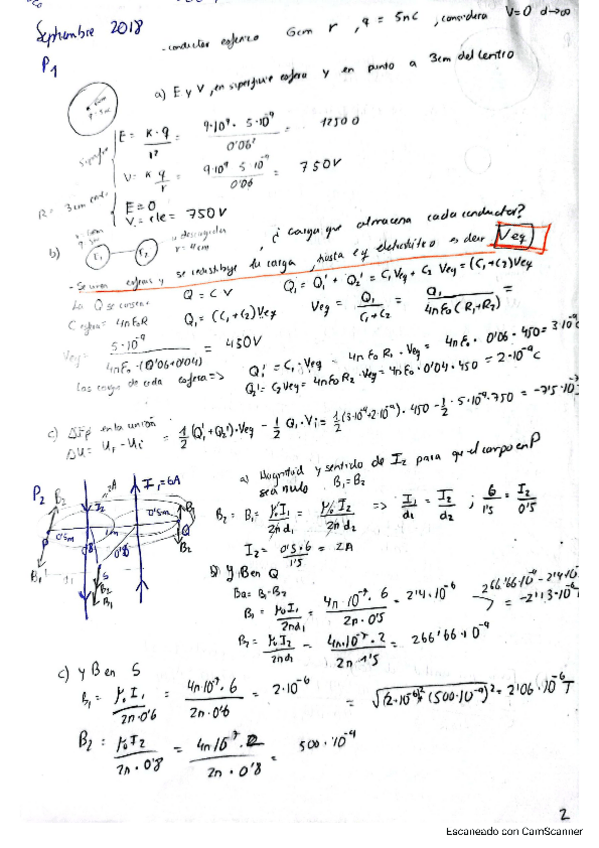 Septiembre 2018
P1
- conductor esférico 6cm r , q = 5nC , considera V=0 d→∞
a) E y V, en superficie esfera y en punto a 3cm del centro
E = K·q / r² = 9·10⁹ · 5·10⁻⁹ / 0'06² = 12500
V = K q / r = 9·10⁹ 5·10⁻⁹ / 0'06 = 750V
E=0
V = cte = 750V
b) r = 4cm , ¿ carga que almacena cada conductor?
- Se unen esferas y se redistribuye la carga, hasta eq electrostático es decir Veq
La Q se conserva Q = C V Q₁ = Q₁' + Q₂' = C₁ Veq + C₂ Veq = (C₁+C₂)Veq
C esfera = 4πε₀R Q₁ = (C₁+C₂)Veq Veq = Q₁ / C₁+C₂ = Q₁ / 4πε₀(R₁+R₂) =
Veq = 5·10⁻⁹ / 4πε₀·(0'06+0'04) = 450V
Las cargas de cada esfera => Q₁' = C₁·Veq = 4πε₀ R₁·Veq = 4πε₀·0'06·450 = 3·10⁻⁹
Q₂' = C₂Veq = 4πε₀R₂·Veq = 4πε₀·0'04·450 = 2·10⁻⁹ C
c) ΔEp en la unión
ΔU = U_f - U_i = 1/2 (Q₁'+Q₂')·Veq - 1/2 Q₁·V₁ = 1/2 (3·10⁻⁹+2·10⁻⁹)·450 - 1/2·5·10⁻⁹·750 = -7'5·10⁻⁷
P2
B₂ 2A I₂ I₁=6A
0'5m 1m 0'5m B₁
P Q
B₁ 0'8 0'6 B₂
S
B₂
B₁
a) Magnitud y sentido de I₂ para que el campo en P
sea nulo B₁=B₂
B₂ = B₁ = μ₀I₁ / 2πd₁ = μ₀I₂ / 2πd₂ => I₁/d₁ = I₂/d₂ ; 6/1'5 = I₂/0'5
I₂ = 0'5·6 / 1'5 = 2A
b) Y B en Q
B₁ = μ₀I₁ / 2πd₁ = 4π·10⁻⁷·6 / 2π·0'5 = 2'4·10⁻⁶
B₂ = μ₀I₂ / 2πd₂ = 4π·10⁻⁷·2 / 2π·1'5 = 266'66·10⁻⁹
c) y B en S
B₁ = μ₀ I₁ / 2π·0'6 = 4π10⁻⁷·6 / 2π·0'6 = 2·10⁻⁶
= √(2·10⁻⁶)²+(500·10⁻⁹)² = 2'06·10⁻⁶ T
B₂ = μ₀I₂ / 2π·0'8 = 4π10⁻⁷·2 / 2π·0'8 = 500·10⁻⁹
2
Escaneado con CamScanner